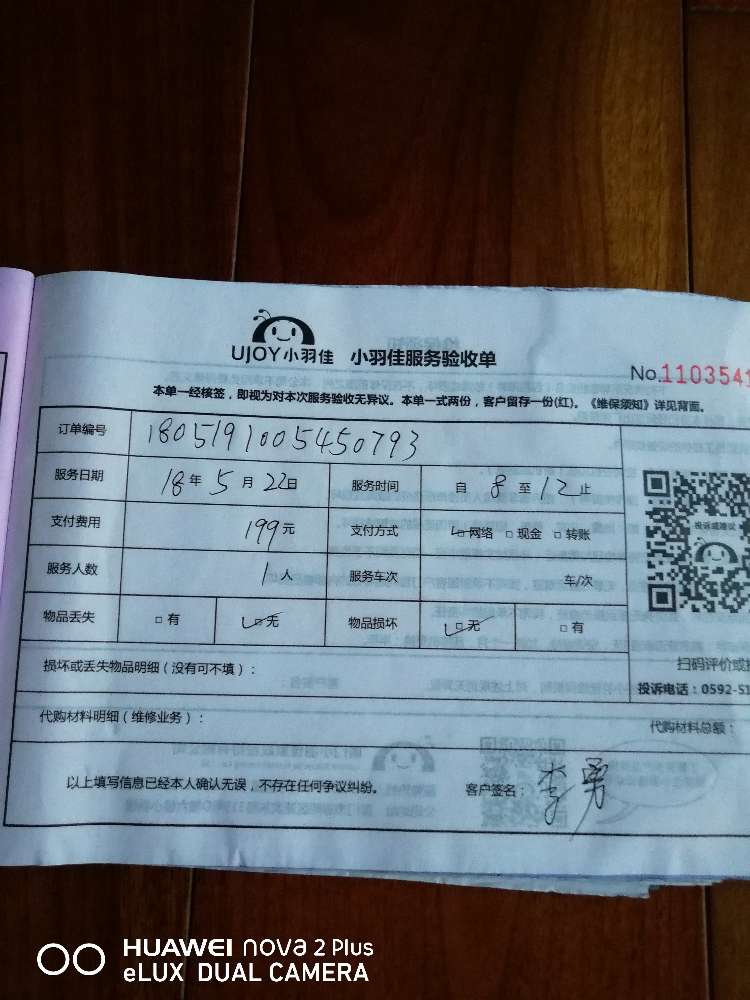 UJOY小羽佳 小羽佳服务验收单
No.1103541
本单一经核签，即视为对本次服务验收无异议。本单一式两份，客户留存一份(红)。《维保须知》详见背面。
订单编号 1805191005450793
服务日期 18年5月22日 服务时间 自8至12止
支付费用 199元 支付方式 □网络 □现金 □转账
投诉或建议
服务人数 1人 服务车次 车/次
物品丢失 □有 □无 物品损坏 □无 □有
损坏或丢失物品明细（没有可不填）：
扫码评价或
投诉电话：0592-51
代购材料明细（维修业务）：
代购材料总额：
以上填写信息已经本人确认无误，不存在任何争议纠纷。 客户签名：李勇
HUAWEI nova 2 Plus
eLUX DUAL CAMERA